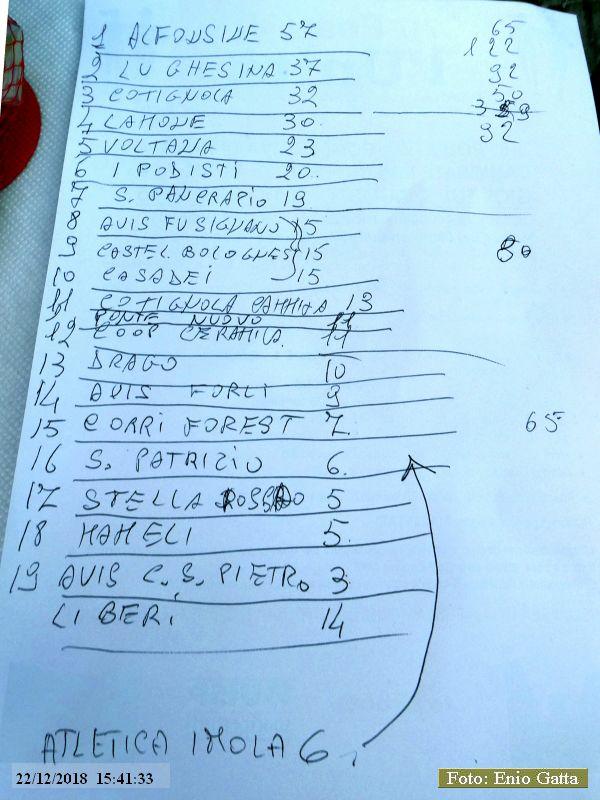 1 ALFONSINE 57 65
2 LUGHESINA 37 122
3 COTIGNOLA 32 92
50
4 LAMONE 30. 92
5 VOLTANA 23
6 I PODISTI 20.
7 S. PANCRAZIO 19
8 AVIS FUSIGNANO 15
9 CASTEL BOLOGNESE 15 80
10 CASADEI 15
11 COTIGNOLA CAMMINA 13
PONTE NUOVO 11
12 COOP CERAMICA. 11
13 DRAGO 10
14 AVIS FORLI 9
15 CORRI FOREST 7 65
16 S. PATRIZIO 6.
17 STELLA ROSSA 5
18 MAMELI 5.
19 AVIS C. S. PIETRO 3
LIBERI 14
ATLETICA IMOLA 6.
22/12/2018 15:41:33
Foto: Enio Gatta